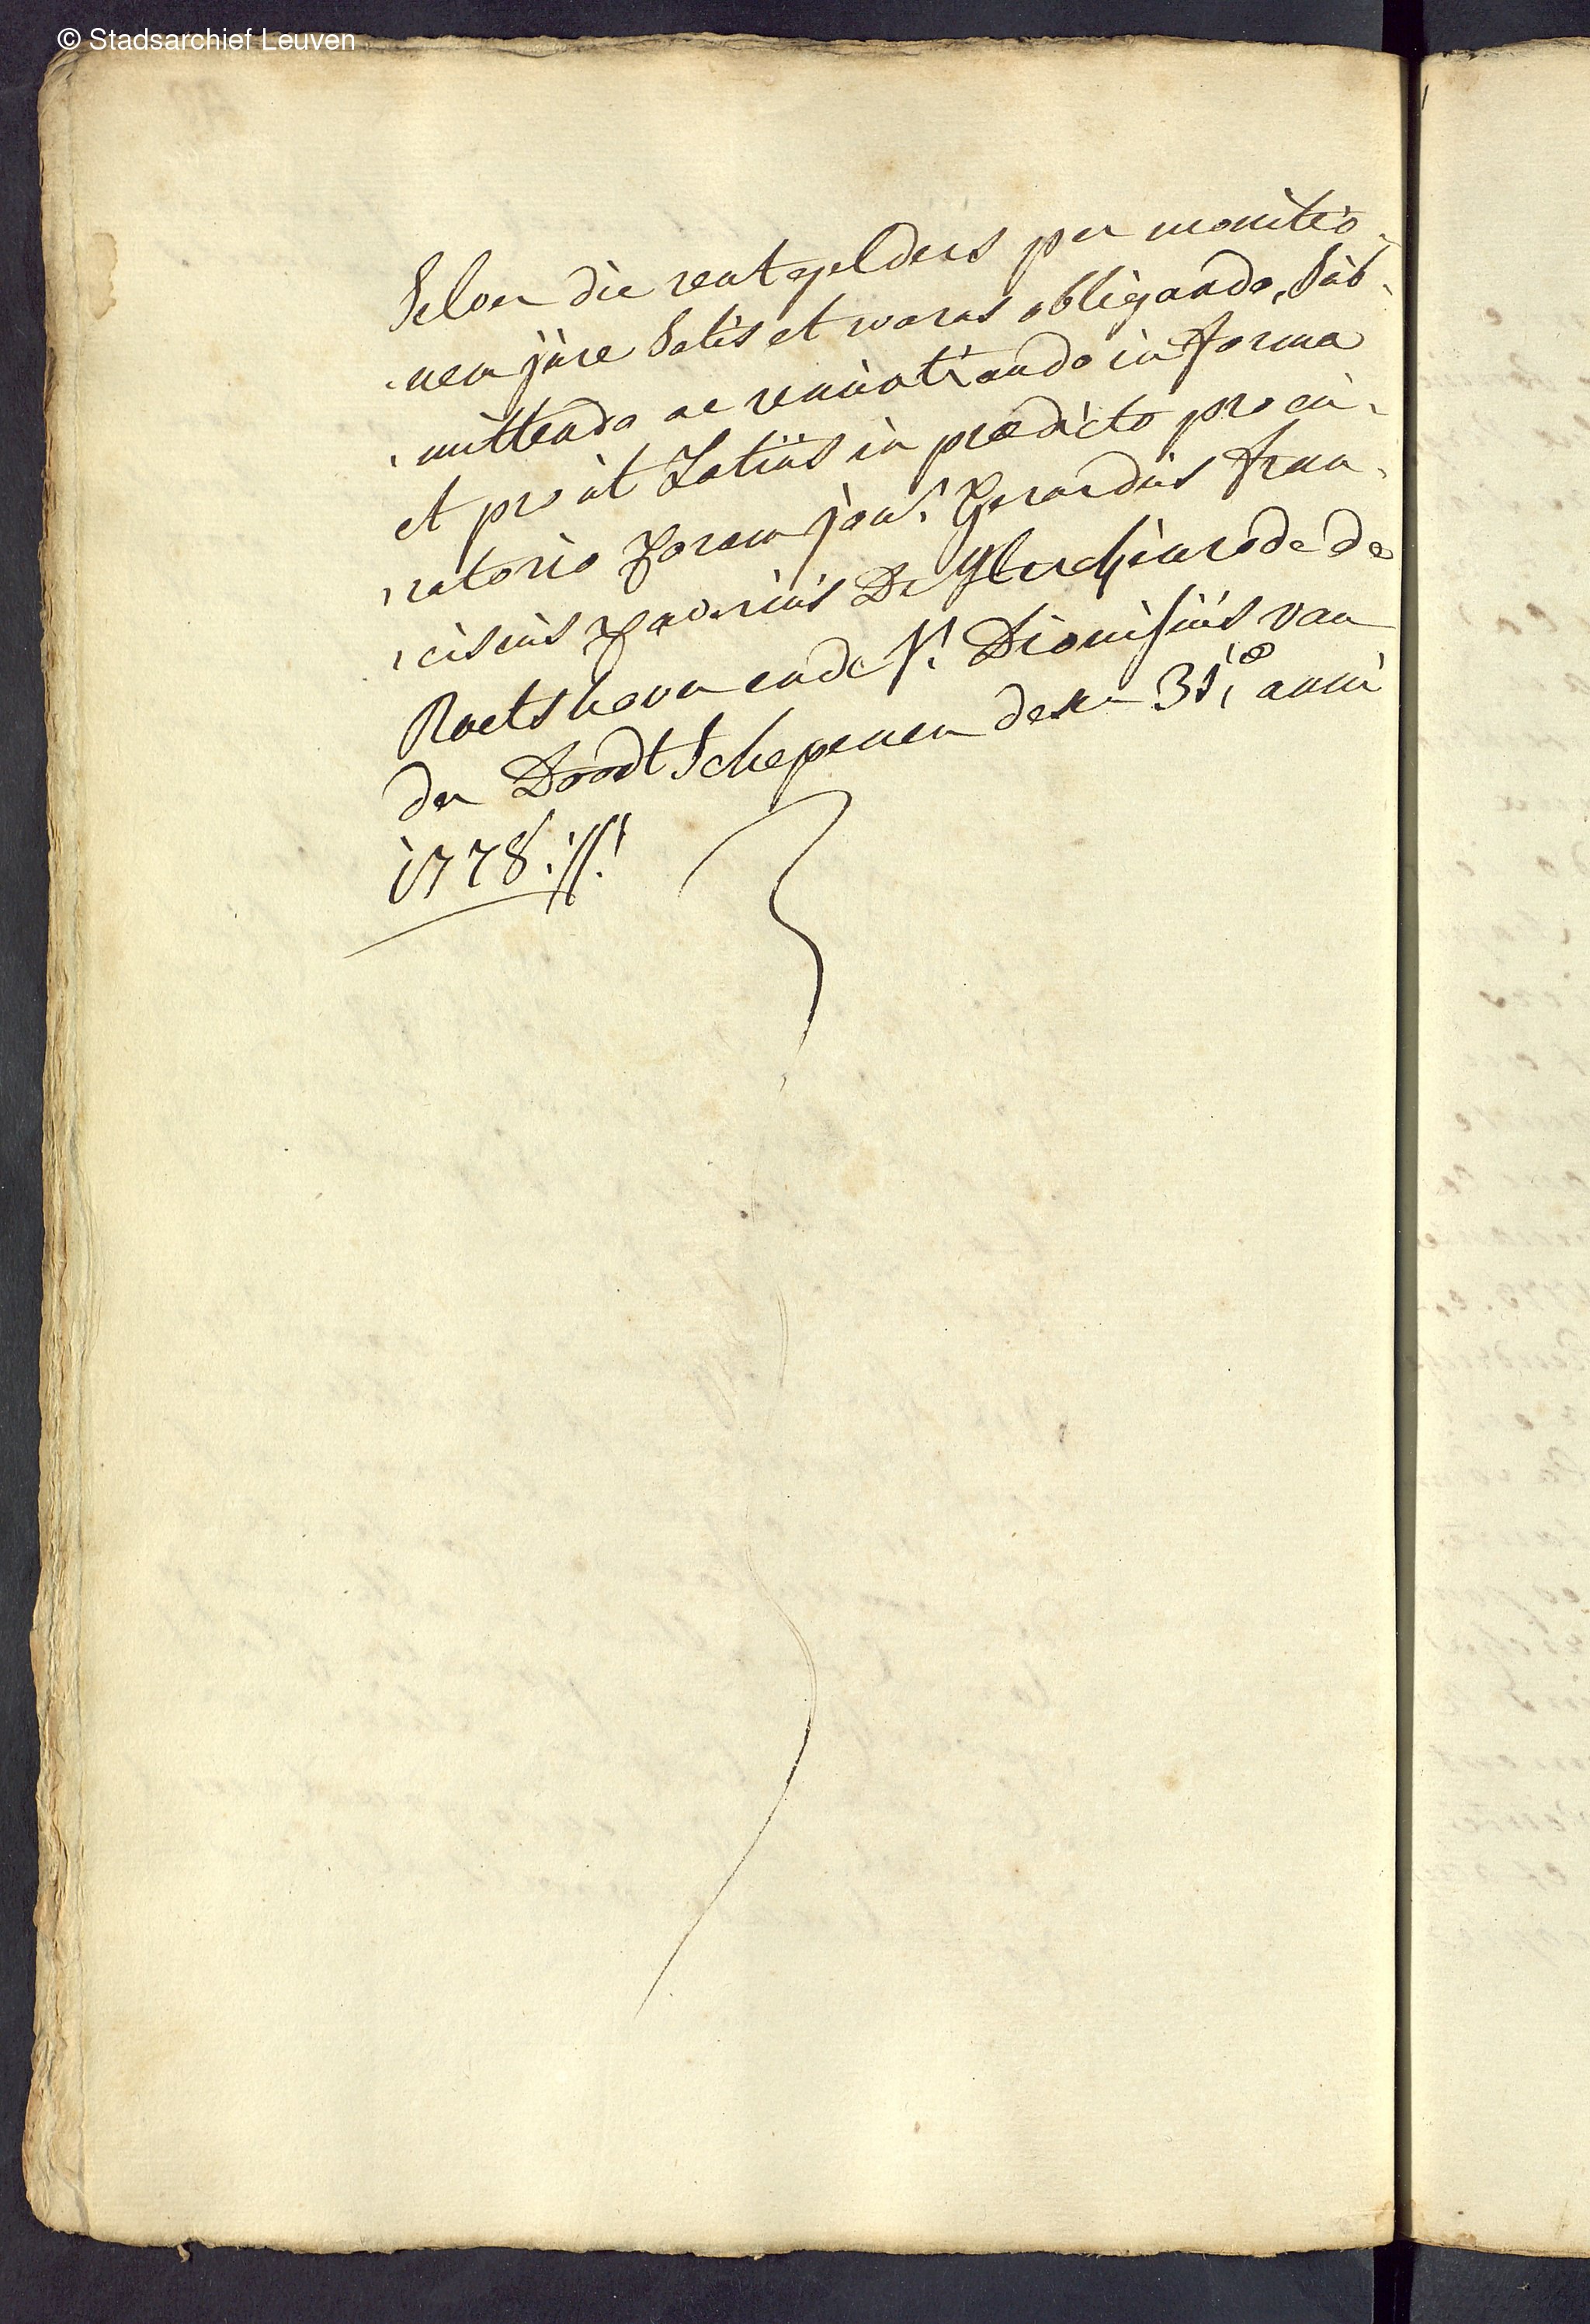 © Stadsarchief Leuven
selven die rentgelders per monitio-
-nem jure satis et waras obligando, sub-
-mittendo ac renuntiando in forma
et prout Latius in prædicto procu-
-ratorio Coram jon.r Gerardus fran-
-ciscus Xaverius De Herckenrode de
Roetshoven ende S.r Dionisius van
der Doodt Schepenen desen 31.e anni
1778.